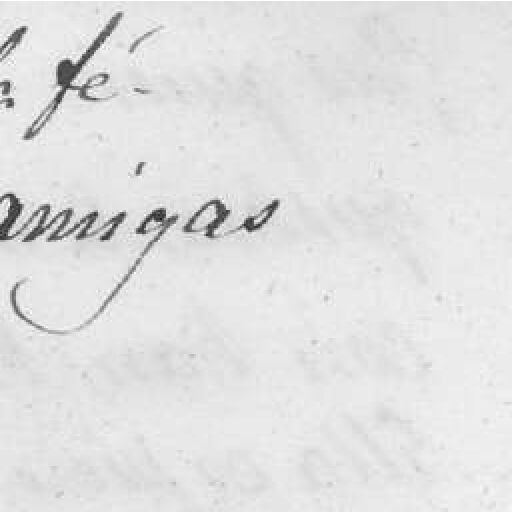 fé-
amigas